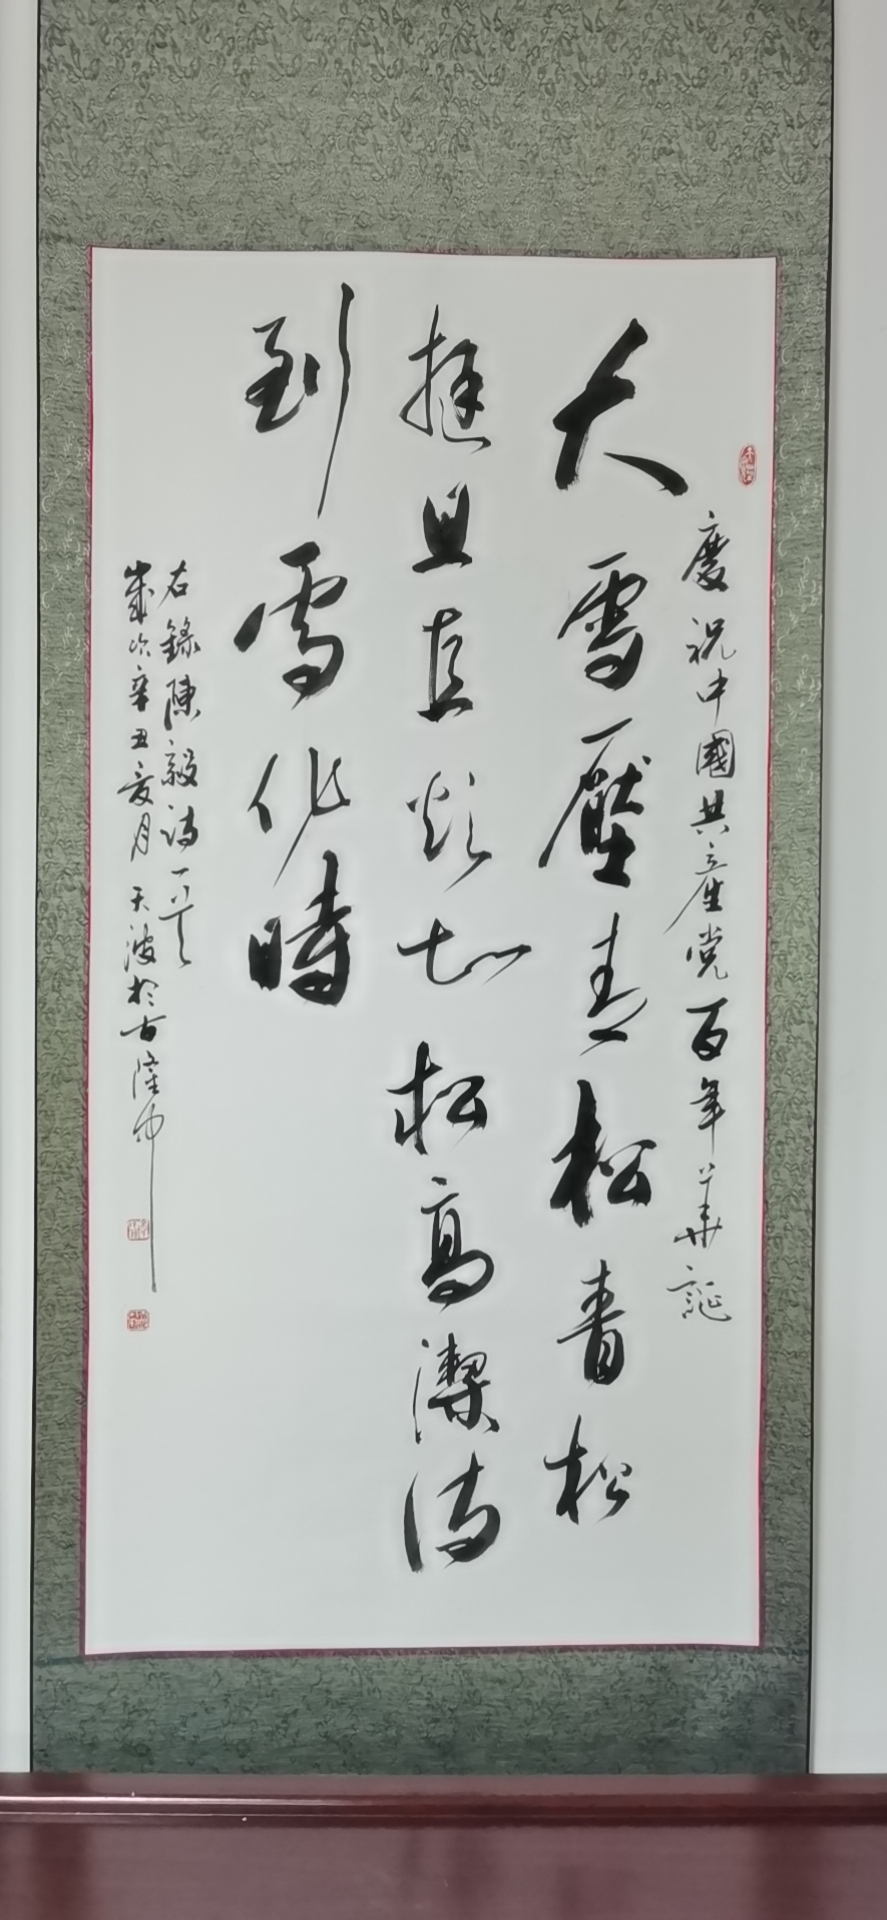 慶祝中國共產党百年華誕
大雪壓青松青松
挺且直欲知松高潔待
到雪化時
右錄陳毅詩一首
歲次辛丑夏月天波於古隆中